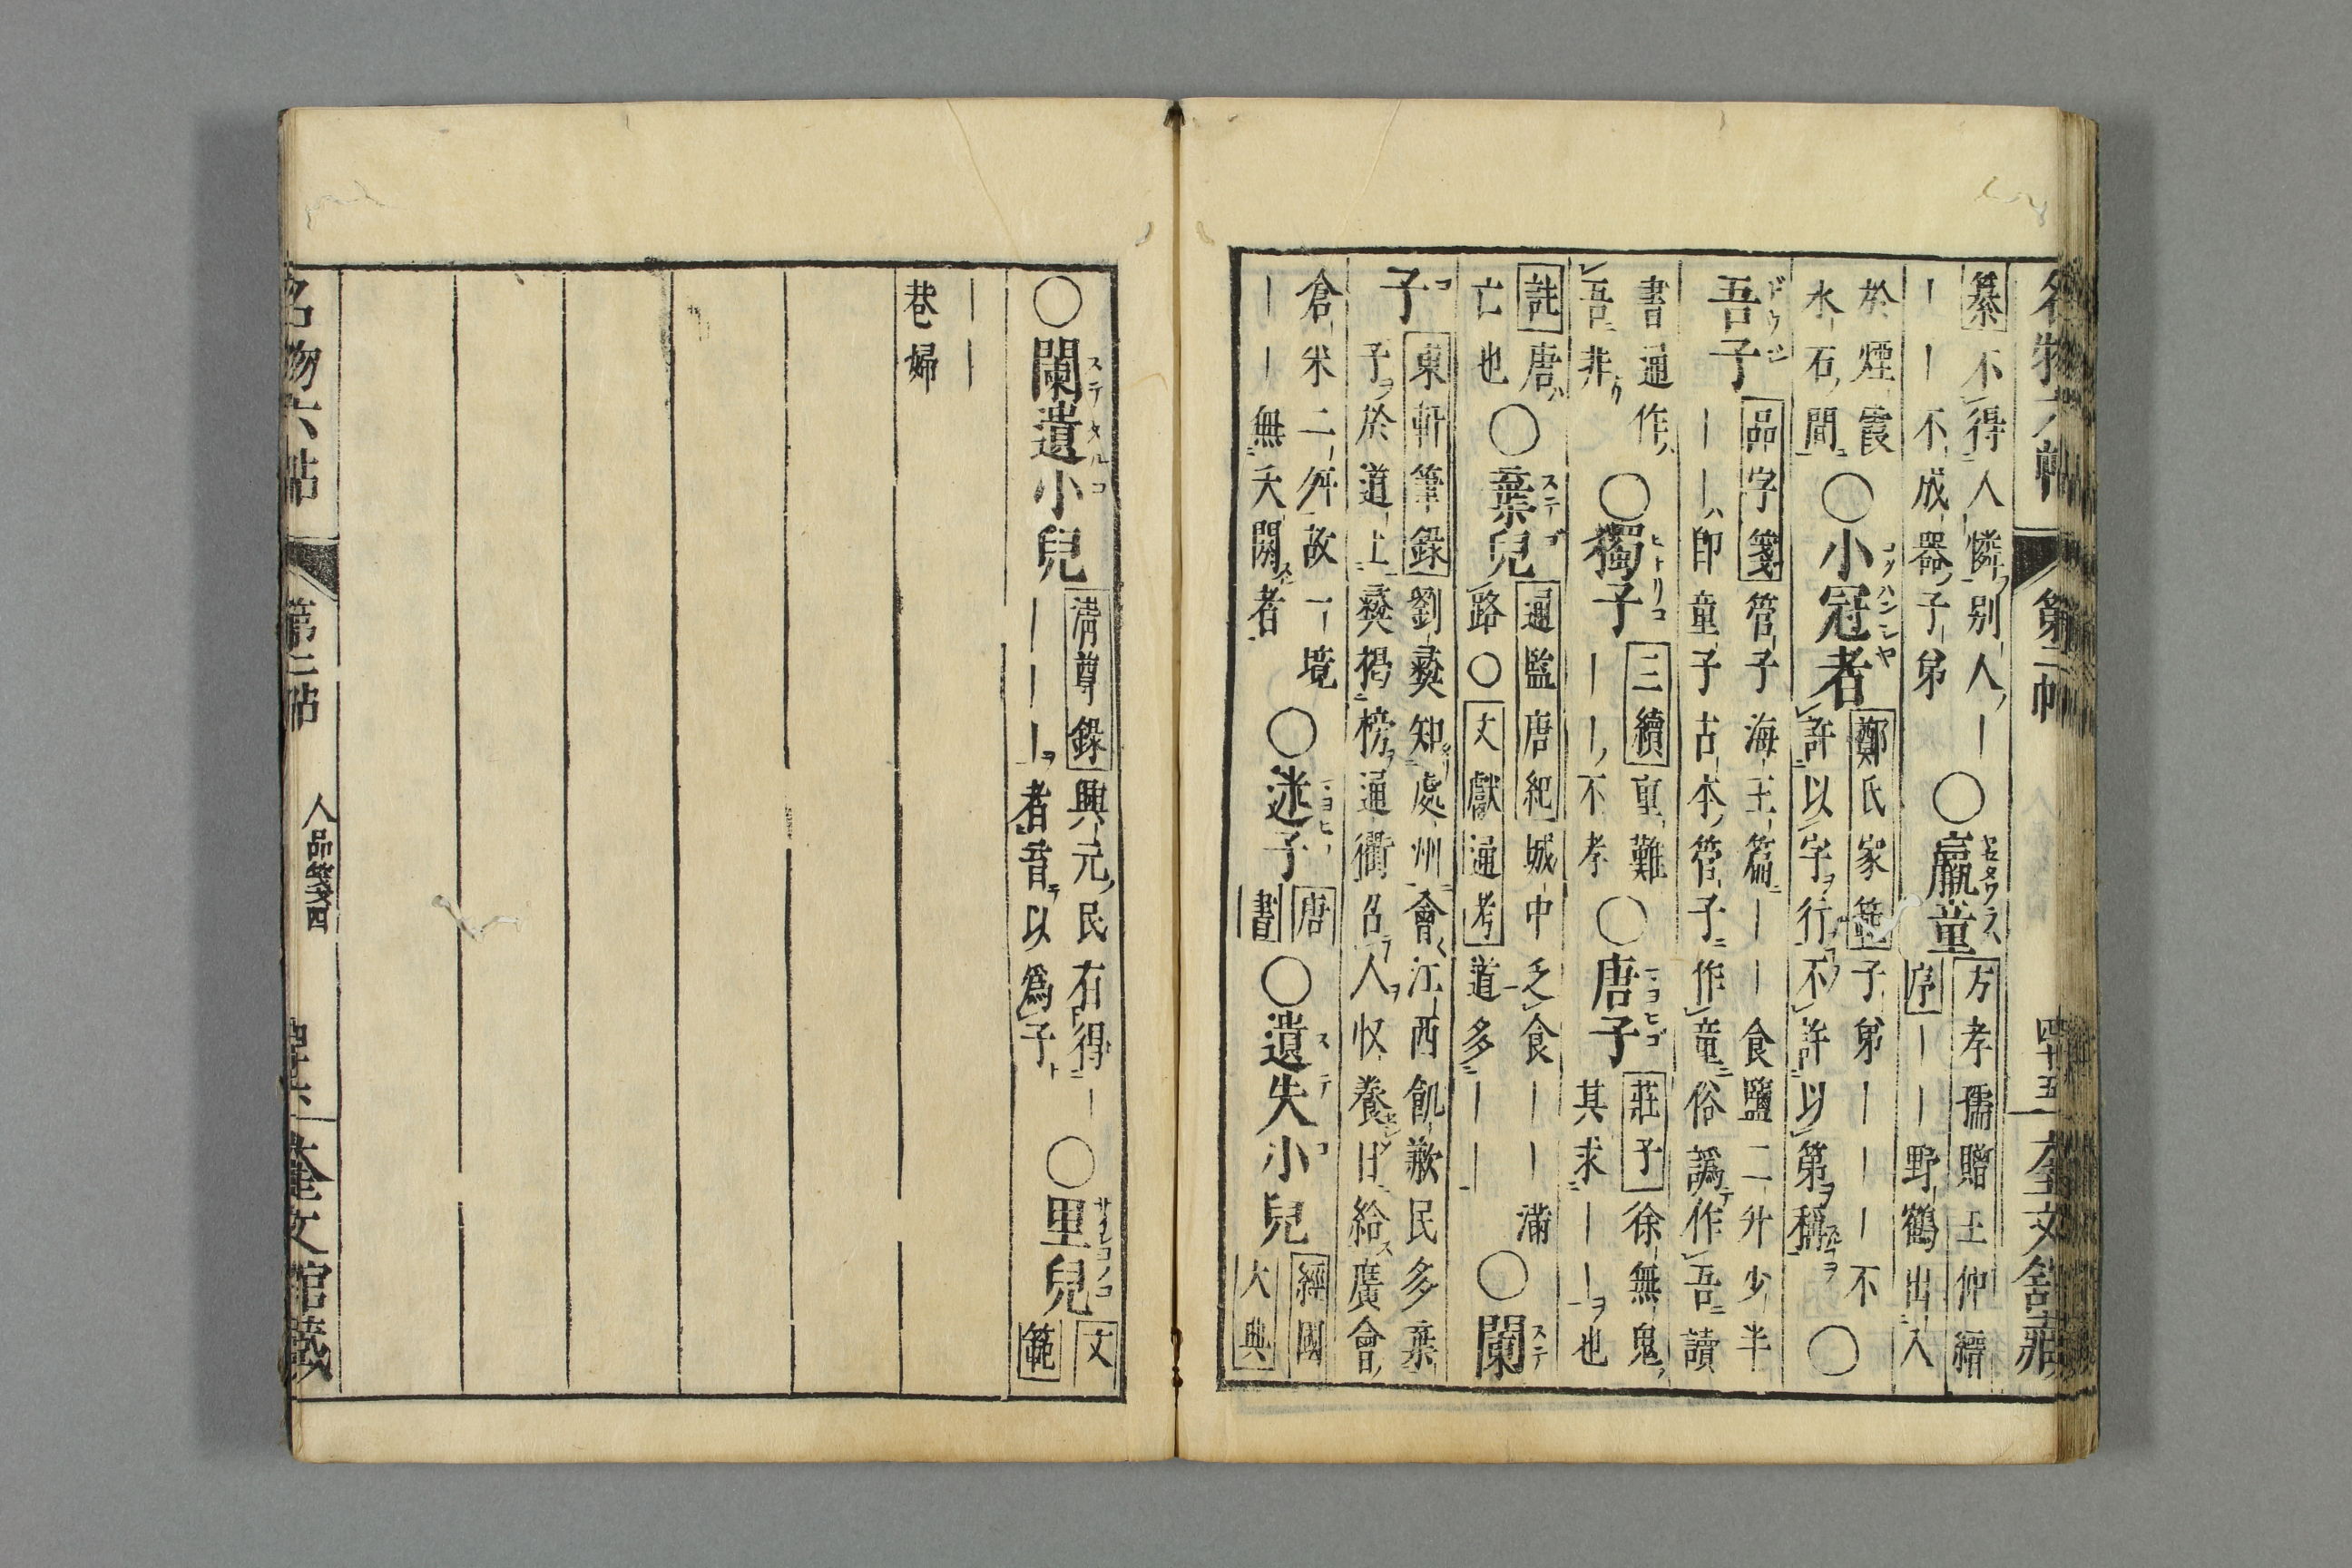 名物六帖 第二帖 四十五 奎文舘藏
纂 不得人憐別人｜ ○羸童 方孝孺贈王仲縉
｜｜不成器子弟 序｜｜野鶴出入
於煙霞 ○小冠者 鄭氏家範 子弟｜｜｜不
水石間 許以字行不許以第稱 ○
吾子 品字箋 管子海王篇｜｜食鹽二升少半
｜｜卽童子古本管子作童俗譌作吾讀
書通作 ○獨子 三續 重難 ○唐子 莊子 徐無鬼
吾非 ｜｜不孝 其求｜｜也
註 唐 ○棄兒 通監唐紀 城中乏食｜｜滿
亡也 路○ 文獻通考 道多｜｜ ○闌
子 東軒筆錄 劉彝知處州會江西飢歉民多棄
子於道上彝揭榜通衢召人收養日給廣會
倉米二舛故一境 ○迷子 唐書 ○遺失小兒 經國大典
｜｜無夭閼者
○闌遺小兒 清尊錄 興元民有得｜ ○里兒 文範
｜｜｜者育以爲子
｜｜
巷婦
名物六帖 第二帖 人品箋四 奎文館藏